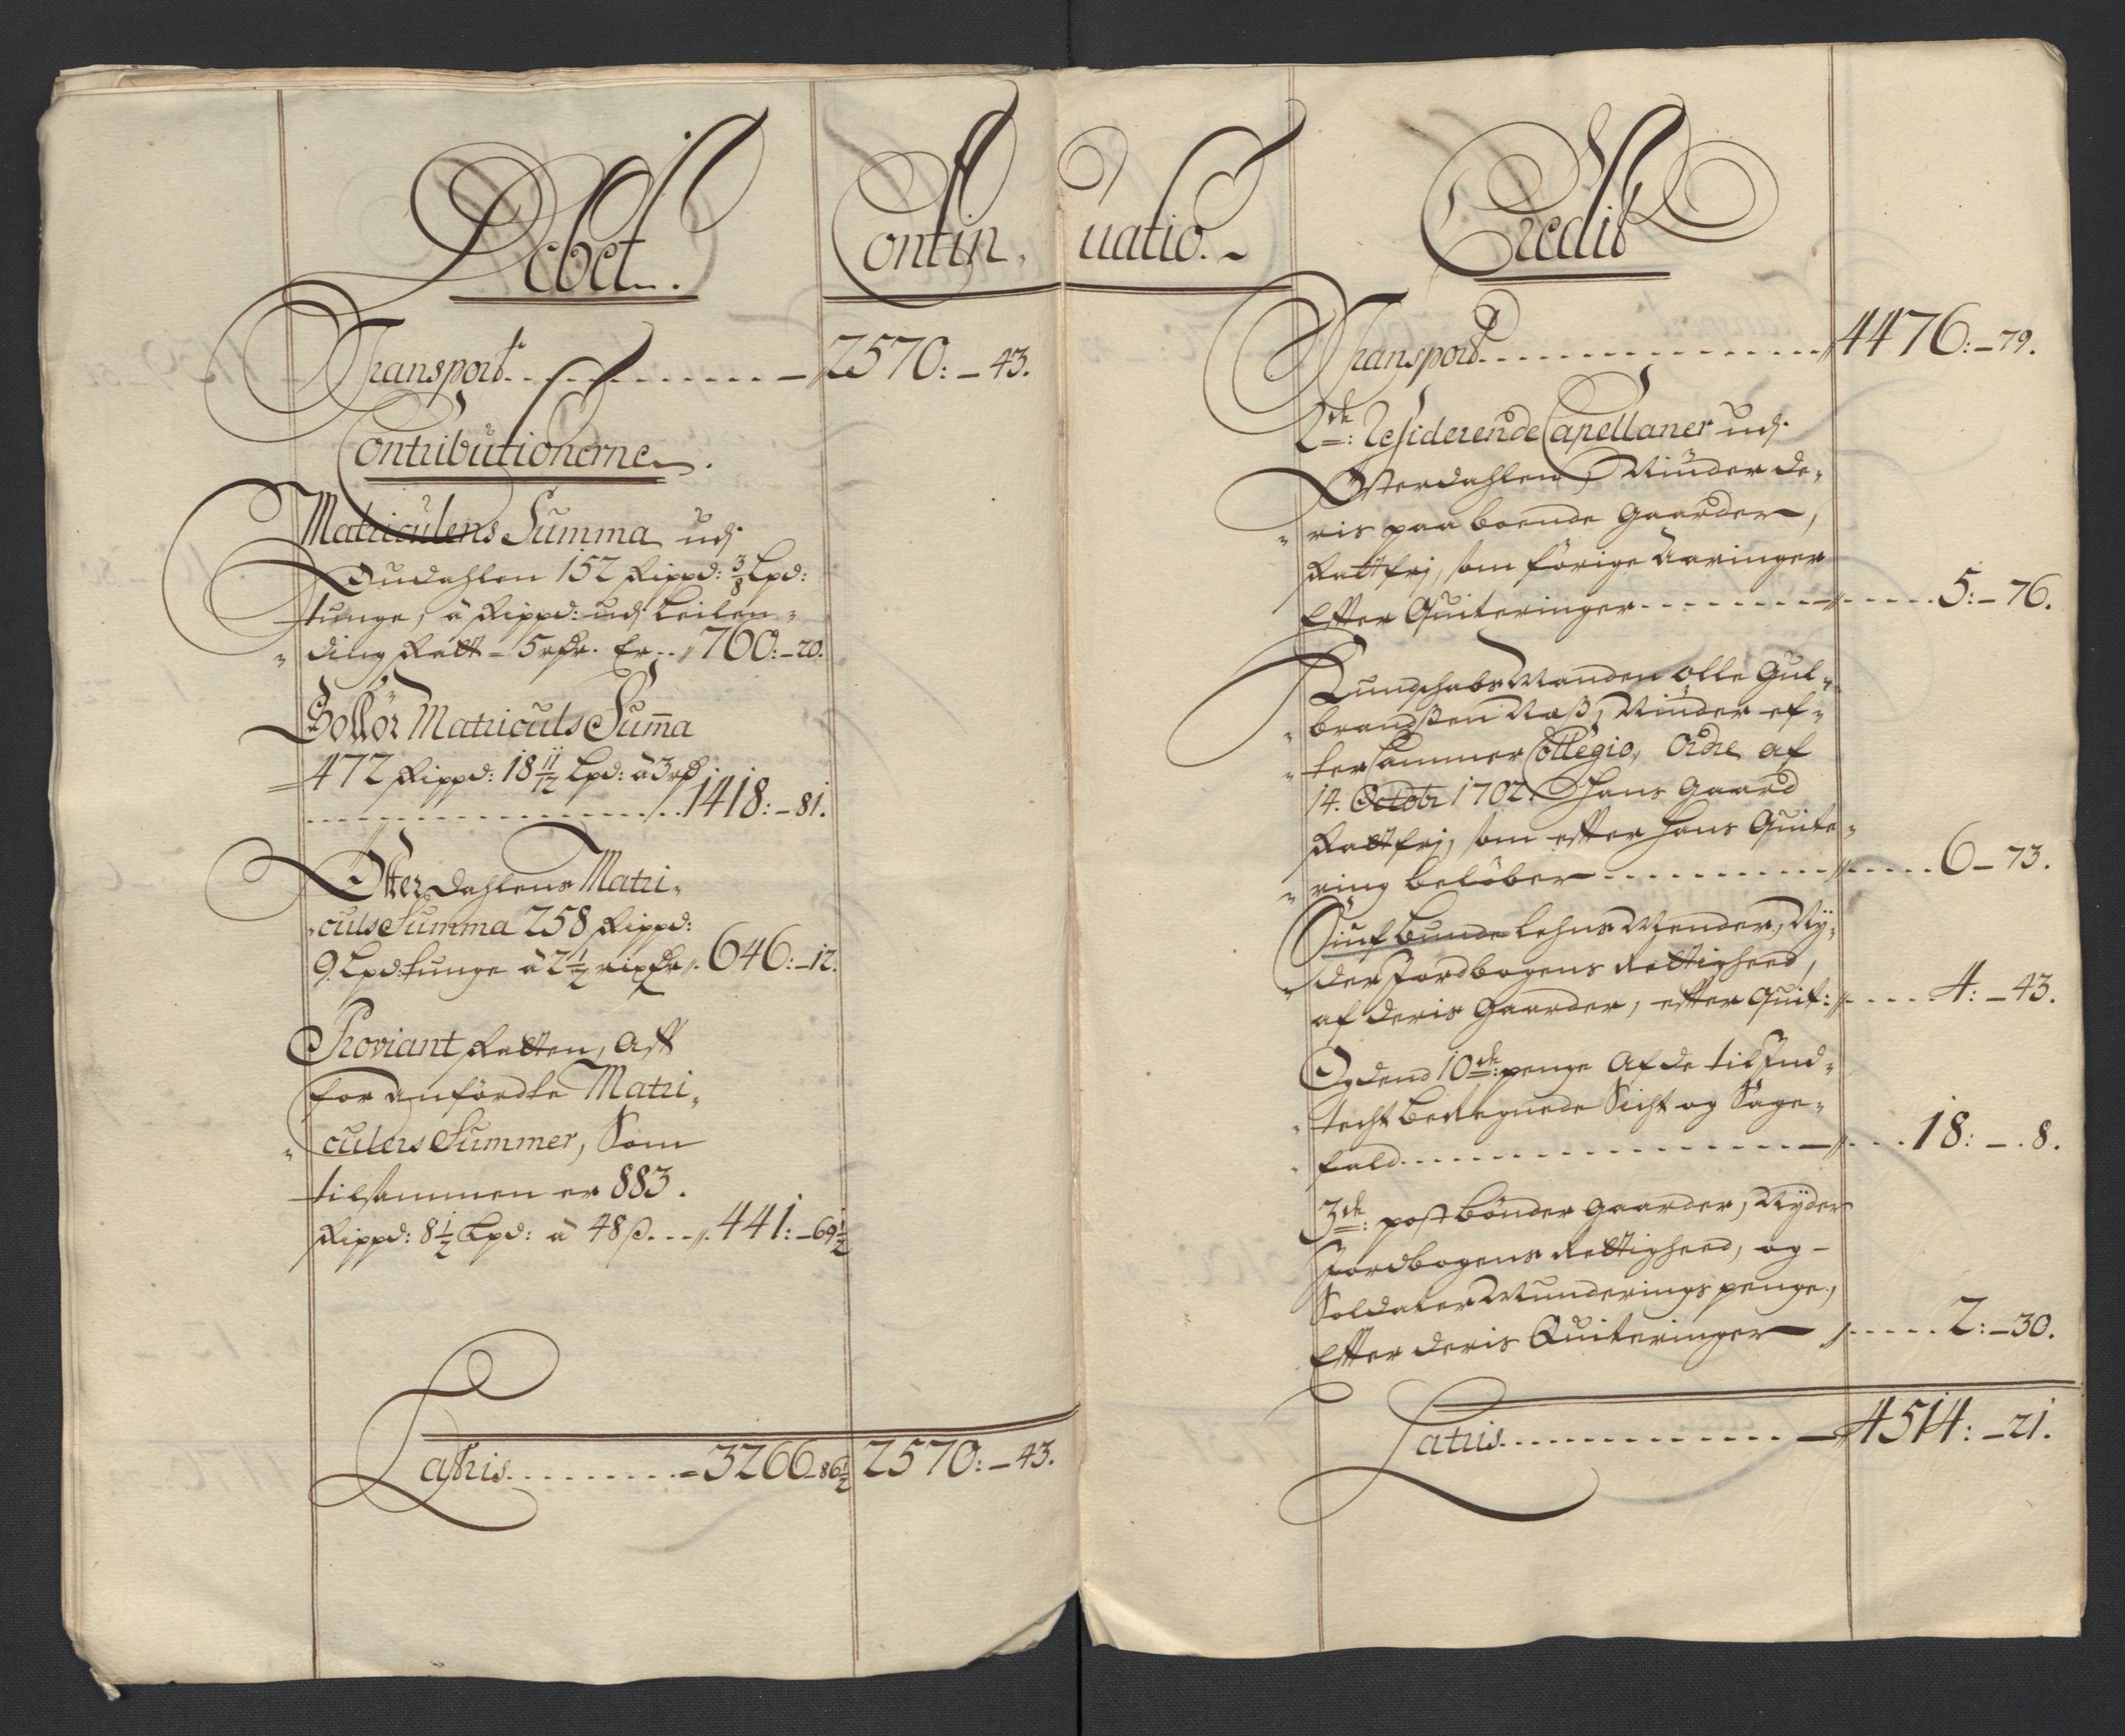 Debet.
Contin,
Transport - 2570:-43.
Contributionerne.
Matriculens Summa udj
Oudahlen 152 Skippd: 3/8 Lpd:
tunge, â Skippd: udj Leilen-
ding Skatt - 5 rdr. Er 760:-20.
Sollör Matriculs Suma
472 Skippd: 18 11/12 Lpd: â 3 rd
1418:-81.
Østerdahlens Matri-
culs Summa 258 Skippd:
9. Lpd: tunge â 2 1/2 rixdr 646:-12.
Proviant Skatten, Aff
for anførdte Matri-
culers Summer, Som
tilsammen er 883.
Skippd: 8 1/2 Lpd: â 48 ß 441:-69 1/2
Lateris 3266-86 1/2 2570:-43.
uatio.
Credit
Transport 4476:-79.
2de: Residerende Capellaner udj
Østerdahlen, Niuder de-
ris paa boende gaarder,
Skattfrj, som förige Aaringer
Efter Quiteringer 5:-76.
Kundschabs Manden Olle Gul-
brandßen Næß, Niuder ef-
ter Cammer Collegio, Ordre af
14. Octobr 1702. Hans gaard
Skattfrj, som efter hans Quite-
ring beløber 6-73.
Siuf bunde Lehns Mender, Ny-
der Jordbogens Rettigheed,
af deris gaarder, efter Quit: 4:-43.
Og dend 10de: penge Af de til Ind-
techt beregnede Sicht og Sage-
fald 18:-.8.
3de: post bönder gaarder, Nyder
Jordbogens Rettigheed, og-
Soldater Munderings penge,
Efter deris Quiteringer 2:-30.
Latris 4514:-21.